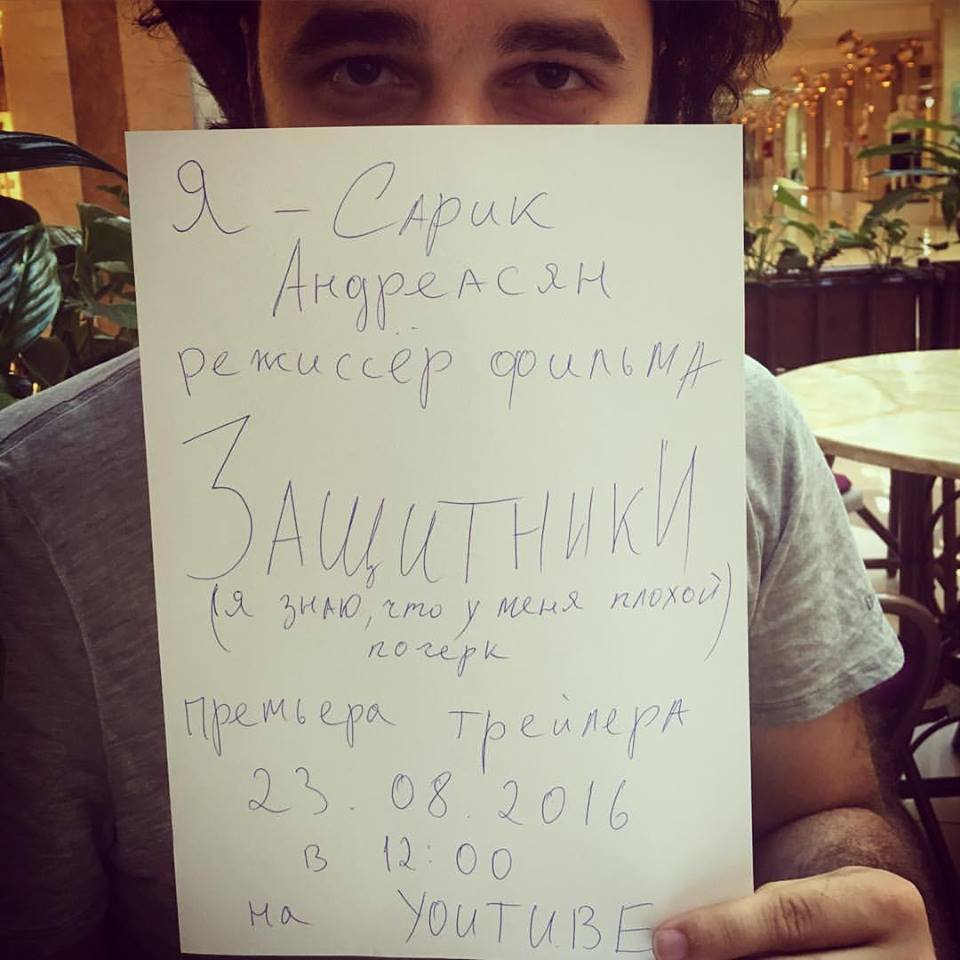 Я – Сарик
Андреасян
режиссёр фильма
ЗАЩИТНИКИ
(я знаю, что у меня плохой)
почерк
премьера трейлера
23.08.2016
в 12:00
на YOUTUBE